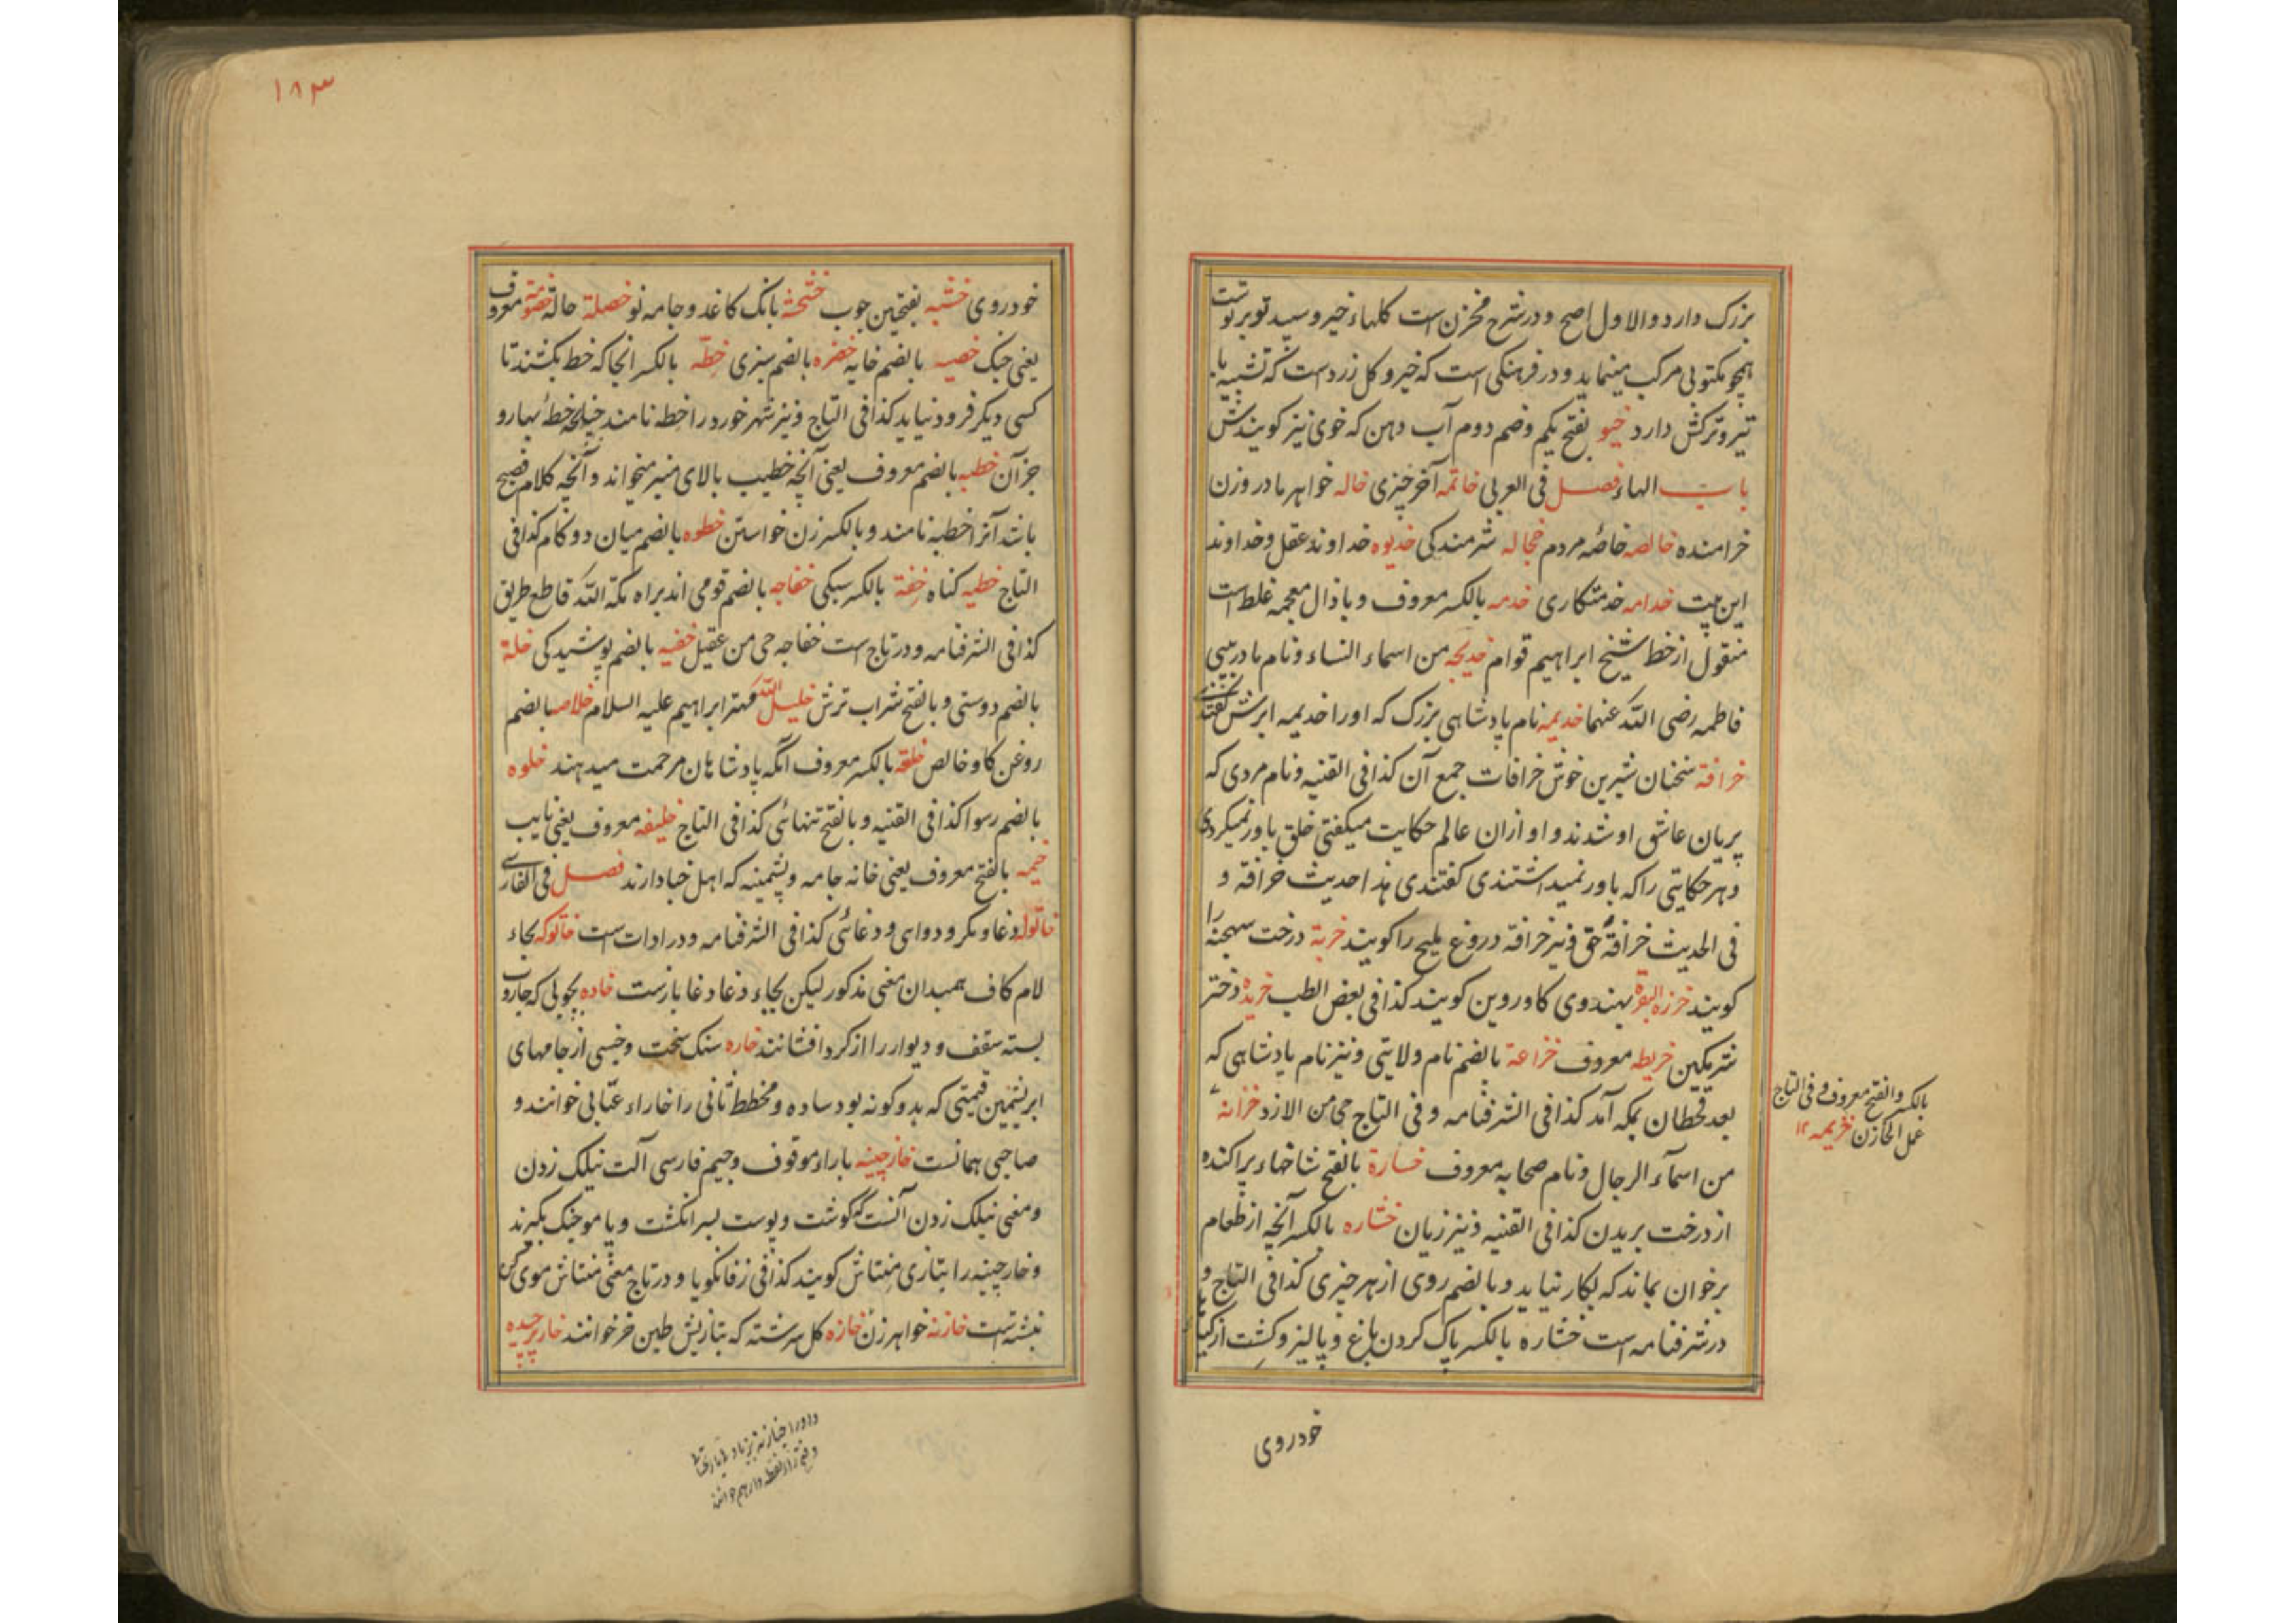 بزرک دارد والاول اصح و در شرح مخزن است کلهاء خیر و سپید تو بر توست
همچو مکتوبی مرکب مینماید و در فرهنکی است که خیرو کل زرد است که تشبیه با
تیر و ترکش دارد خیو بفتح یکم وضم دوم آب دهن که خوی نیز کویندش
باب الهاء فصل فی العربی خاتمه آخر چیزی خاله خواهر مادر وزن
خرامنده خالصه خاصّه مردم خجاله شرمندکی خدیوه خداوند عقل وخداوند
این بیت خدامه خدمتکاری خدمه بالکسر معروف و با ذال معجمه غلط است
منقول از خط شیخ ابراهیم قوام خدیجه من اسماء النساء و نام مادر بیبی
فاطمه رضی الله عنهما خدیمه نام پادشاهی بزرک که او را خدیمه ابرش کفتندی
خرافة سخنان شیرین خوش خرافات جمع آن کذا فی القنیه و نام مردی که
پریان عاشق او شدند و او ازان عالم حکایت میکفتی خلق باور نمیکردی
و هر حکایتی را که باور نمیداشتندی کفتندی هذا حدیث خرافة و
فی الحدیث خرافةُ حق و نیز خرافه دروغ ملیح را کویند خربة درخت سهجنه را
کویند خرزه البقره بهندوی کاوروین کویند کذا فی بعض الطب خریده دختر
شرمکین خریطه معروف خزاعة بالضم نام ولایتی و نیز نام پادشاهی که
بعد قحطان بمکه آمد کذا فی الشرفنامه و فی التاج حی من الازد خزانة
من اسمآء الرجال و نام صحابه معروف خسارة بالفتح شاخهاء پراکنده
از درخت بریدن کذا فی القنیه و نیز زیان خشاره بالکسر آنچه از طعام
بر خوان بماند که بکار نیاید و بالضم روی از هر چیزی کذا فی التاج و
در شرفنامه است خشاره بالکسر پاک کردن باغ و پالیز و کشت از کیا
خودروی
بالکسر والفتح معروف و فی التاج
عمل الخازن خزیمه ۱۲
۱۸۳
خودروی خشبه بفتحین چوب خشخشة بانک کاغذ و جامه نو خصلة حالة خصومة معروف
یعنی جنک خصیه بالضم خایه خضره بالضم سبزی خطّه بالکسر انجا که خط بکشند تا
کسی دیکر فرود نیاید کذا فی التاج و نیز شهر خورد را خطه نامند چنانچه خطهٔ بهار و
جز آن خطبه بالضم معروف یعنی آنچه خطیب بالای منبر میخواند و آنچه کلام فصیح
باشد آنرا خطبه نامند و بالکسر زن خواستن خطوه بالضم میان دو کام کذا فی
التاج خطیه کناه خفة بالکسر سبکی خفاجه بالضم قومی اند براه مکة الله قاطع طریق
کذا فی الشرفنامه و در تاج است خفاجه حی من عقیل خفیه بالضم پوشیدکی خلة
بالضم دوستی و بالفتح شراب ترش خلیل الله مهتر ابراهیم علیه السلام خلاصه بالضم
روغن کاو خالص خلعة بالکسر معروف آنکه پادشاهان مرحمت میدهند خلوه
بالضم رسوا کذا فی القنیه و بالفتح تنهائی کذا فی التاج خلیفه معروف یعنی نایب
خیمه بالفتح معروف یعنی خانه جامه و پشمینه که اهل خبا دارند فصل فی الفارسی
خاتوله دغا و مکر و دواهی و دغائی کذا فی الشرفنامه و در ادات است خاتوکه بجاء
لام کاف بهمیدان معنی مذکور لیکن بجاء دغا دغا بازست خاده بچوبی که جاروب
بسته سقف و دیوار را از کرد افشانند خاره سنک سخت و جنسی از جامهای
ابریشمین قیمتی که بدو کونه بود ساده و مخطط ثانی را خاراء عتابی خوانند و
صاحبی همانست خارچینه با راء موقوف و جیم فارسی آلت نیلک زدن
و معنی نیلک زدن آنست که کوشت و پوست بسر انکشت و یا موچنک بکیرند
و خارچینه را بتازی منتاش کویند کذا فی زفانکویا و در تاج معنی منتاش موی کن
نبشته است خازنه خواهر زن خازه کل سرشته که بتازیش طین خر خوانند خار برچیده